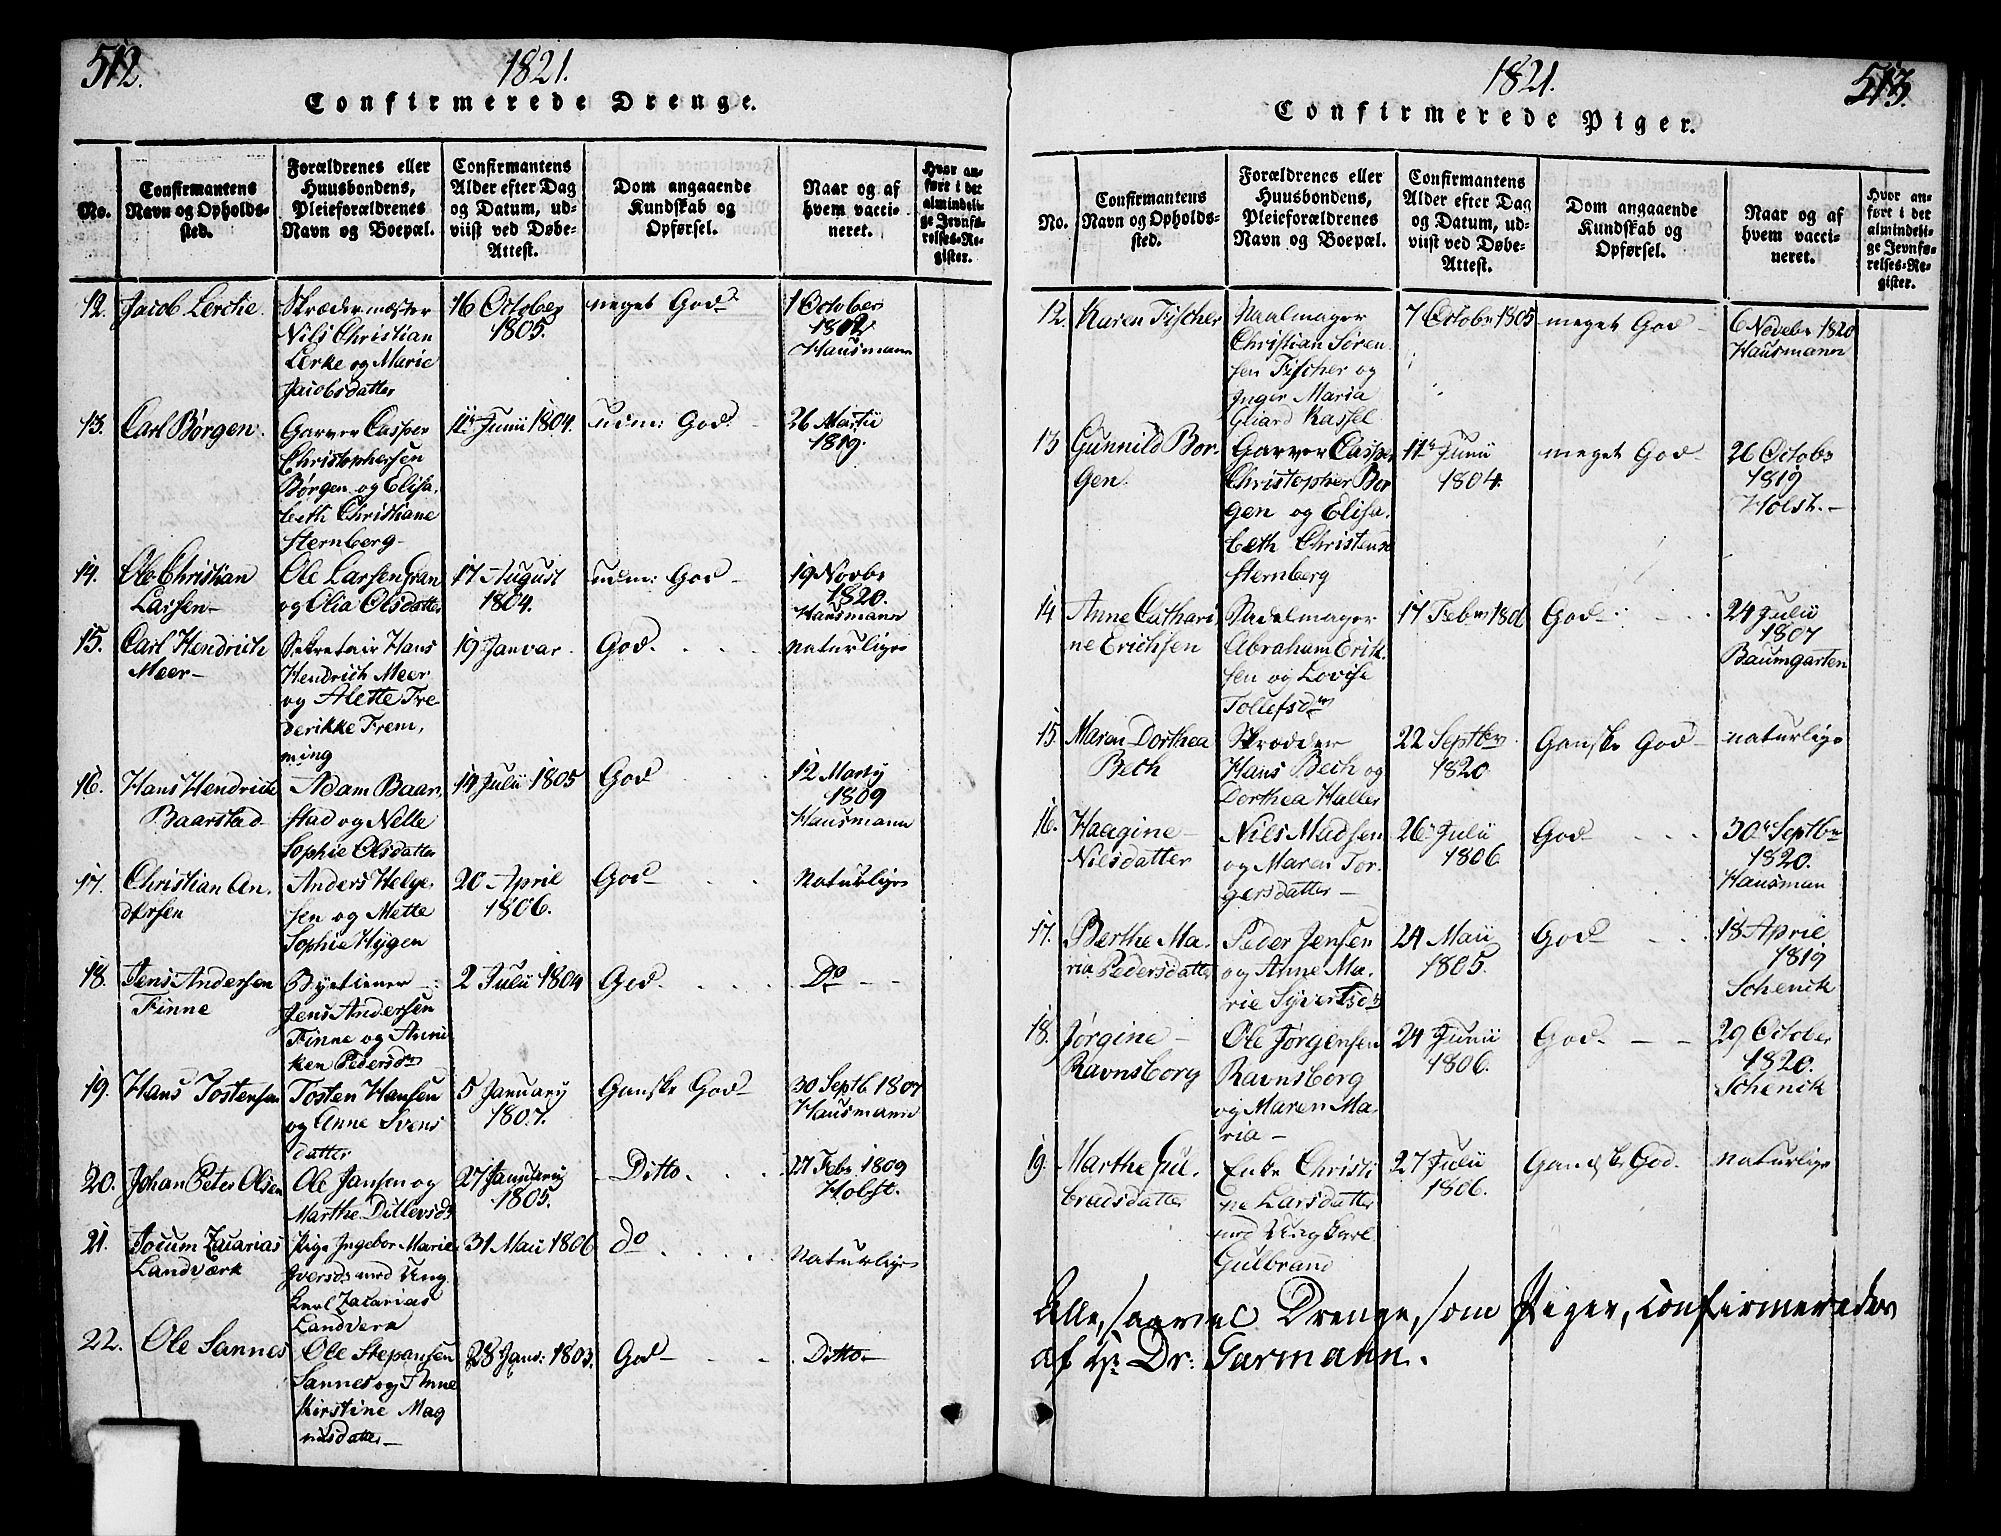 512.
1821.
Confirmerede Drenge.
No.
Confirmantens
Navn og Opholds-
sted.
Forældrenes eller
Huusbondens,
Pleieforældrenes
Navn og Boepæl.
Confirmantens
Alder efter Dag
og Datum, ud-
viist ved Døbe-
Attest.
Dom angaaende
Kundskab og
Opførsel.
Naar og af
hvem vacci-
neret.
Hvor an-
ført i det
almindeli-
ge Jevnfø-
relses-Re-
gister.
12.
Jacob Lerche.
Skrædermester
Nils Christian
Lerke og Marie
Jacobsdatter
16 October
1805.
meget God
1 October
1802
Hausmann
13.
Carl Børgen.
Garver Casper
Christophersen
Børgen og Elisa,
beth Christiane
Sternberg-
11 Junii 1804.
udm: God
26 Martii
1819.
14.
Ole Christian
Larsen-
Ole Larsen Gran
og Olia Olsdatter
17 August
1804.
udm: God
19 Novbr
1820.
Hausmann
15.
Carl Hendrich
Meer-
Sekretair Hans
Hendrich Meer
og Alette Fre-
derikke Frem,
ming
19 Januar
God.
naturlige
16.
Hans Hendrich
Baarstad
Adam Baar,
stad og Nelle
Sophie Olsdatter
14 Julii 1805
God
12 Marty
1809
Hausmann
17.
Christian An,
dersen
Anders Helge,
sen og Mette
Sophie Hygen
20 April
1806.
God
Naturlige
18.
Jens Andersen
Finne
Bytiener
Jens Andersen
Finne og Anni
ken Pedersdr
2 Julii 1804
God.
Do
19.
Hans Tostensen
Tosten Hansen
og Anne Svens
datter
5 January
1807.
Ganske God
30 Septb. 1807
Hausmann
20.
Johan Peter Olsen
Ole Jansen og
Marthe Ditlevsdr
27 January
1805.
Ditto.
27 Febr 1809
Holst.
21.
Jocum Zacarias
Landværk
Pige Ingebor Marie
Iversdr med Ung
Karl Zacarias
Landverk
31 Maii 1806
do
Naturlige
22.
Ole Sannes
Ole Stepansen
Sannes og Anne
Kirstine Mag
nusdatter
28 Janv: 1803.
God
Ditto.
1821.
513.
Confirmerede Piger.
No.
Confirmantens
Navn og Opholds-
sted.
Forældrenes eller
Huusbondens,
Pleieforældrenes
Navn og Boepæl.
Confirmantens
Alder efter Dag
og Datum, ud-
viist ved Døbe-
Attest.
Dom angaaende
Kundskab og
Opførsel.
Naar og af
hvem vacci-
neret.
Hvor an-
ført i det
almindeli-
ge Jevnfø-
relses-Re-
gister.
12.
Karen Fischer
Naalmager
Christian Sören
sen Fischer og
Inger Maria
Gliard Kassel
7 Octobr 1805
meget God
6 Novebr 1820
Hausmann
13
Gunnild Bor-
Gen.
Garver Casper
Christopher Bor
gen og Elisa,
beth Christense
Sternberg
11 Junii
1804.
meget God
26 Octobr
1819
Holst.-
14
Anne Cathari
ne Erichsen
Sadelmager
Abraham Erik,
sen og Lovise
Tollefsdr
17 Febr 1806
God
24 Julii
1807
Baumgarten
15
Maren Dorthea
Bech
Skrædder
Hans Bech og
Dorthea Haller
22 Septbr
1820
Ganske God
naturlige
16.
Haagine
Nilsdatter
Nils Madsen
og Maren Tor,
gersdatter-
26 Julii
1806
God
30 Septbr
1820.
Hausman
17.
Berthe Ma,
ria Pedersdatter
Peder Jensen
og Anne Ma,
rie Syvertsdr
24 Maii
1805.
God
18 April
1819
Schenck
18.
Jørgine
Ravnsborg
Ole Jørgensen
Ravnsborg
og Maren Ma,
ria-
24 Junii
1806.
God
29 October
1820.
Schenck
19.
Marthe Gul,
brudsdatter
Enke Christi
ne Larsdatter
med Ung Karl
Gulbrand
27 Julii
1806.
Ganske God.
naturlige
Alle, saavel Drenge, som Piger, confirmerede
af Hr. Dr. Garmann.